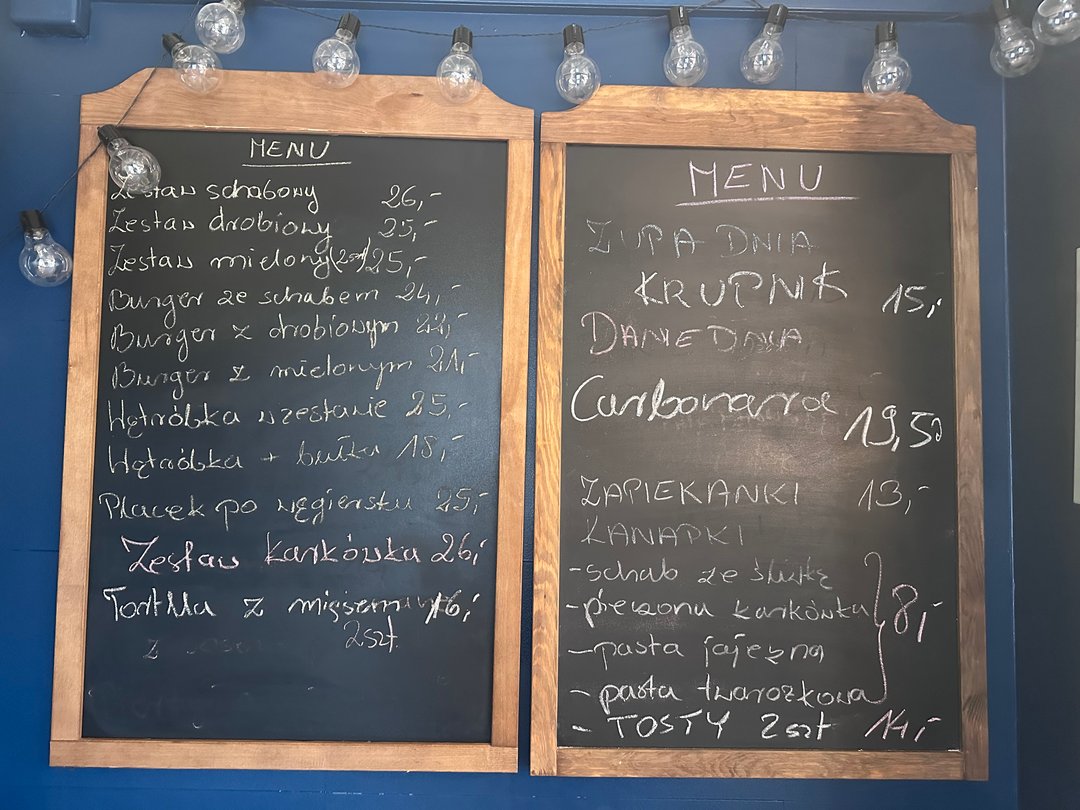 MENU
Zestaw schabowy 26,-
Zestaw drobiowy 25,-
Zestaw mielony (2szt) 25,-
Burger ze schabem 24,-
Burger z drobiowym 22,-
Burger z mielonym 21,-
Wątróbka w zestawie 25,-
Wątróbka + bułka 18,-
Placek po węgiersku 25,-
Zestaw karkówka 26,-
Tortilla z mięsem 16,-
2szt.
z
MENU
ZUPA DNIA
KRUPNIK 15,-
DANIE DNIA
Carbonara 19,50
ZAPIEKANKI 13,-
KANAPKI
- schab ze śliwką
- pieczona karkówka 8,-
- pasta jajeczna
- pasta twarożkowa
- TOSTY 2szt 14,-